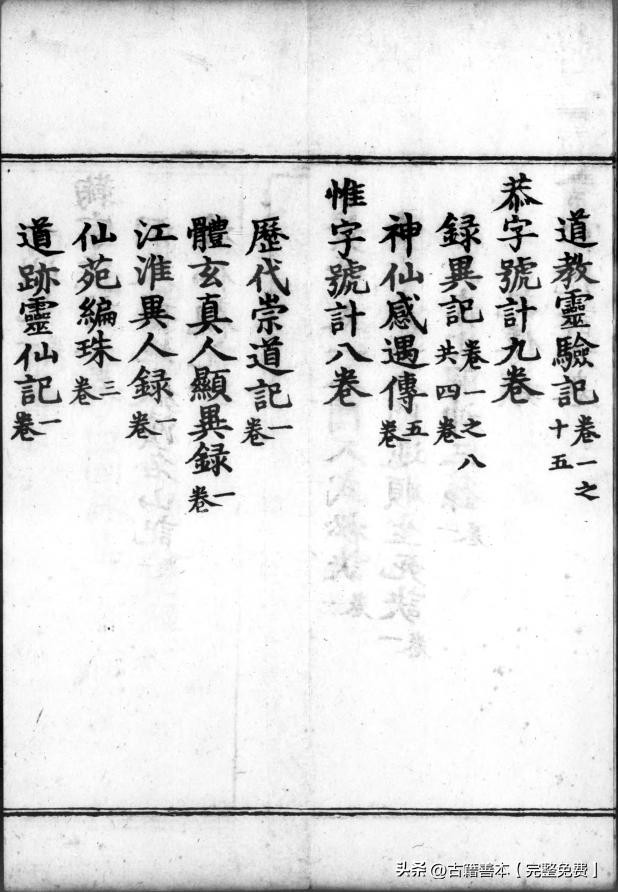 道教靈驗記卷一之十五
恭字號計九卷
録異記卷一之八共四卷
神仙感遇傳五卷
惟字號計八卷
歷代崇道記一卷
體玄真人顯異録一卷
江淮異人録一卷
仙苑編珠三卷
道跡靈仙記一卷
头条@古籍善本【完整免费】